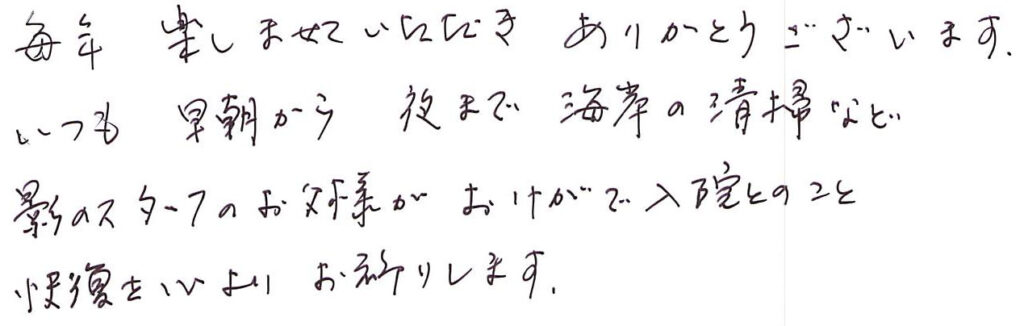 毎年 楽しませていただき ありがとうございます.
いつも 早朝から 夜まで 海岸の清掃など
影のスターフのお父様が おけがで入院とのこと
快復を心より お祈りします.